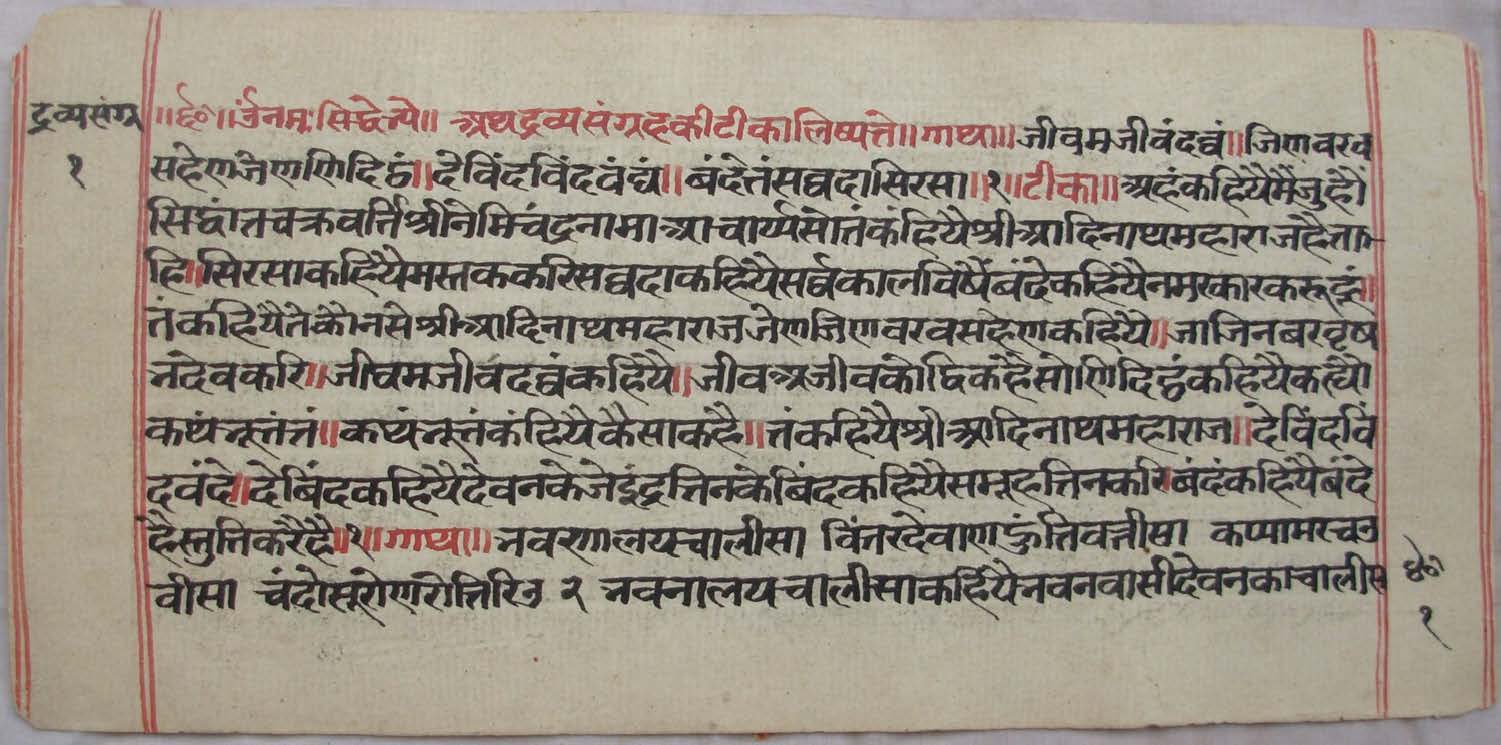 द्रव्यसंग्र
१
॥र्द०॥ ॐनमः सिद्धेभ्यो॥ अथ द्रव्य संग्रह की टीका लिष्यते॥ गाथा॥ जीवमजीवं दव्वं॥ जिणवरव
सहेण जेण णिदिट्ठं॥ देविंदविंदवंद्यं॥ बंदे तं सव्वदा सिरसा॥१॥ टीका॥ अहं कहियै मैं जु हौं
सिद्धांत चक्रवर्त्ति श्री नेमिचंद्र नामा आचार्य्य सो तं कहियै श्री आदिनाथ महाराज है ता
हि॥ सिरसा कहियै मस्तक करि सव्वदा कहियै सर्व्व काल विषैं बंदे कहियै नमस्कार करूं हूं॥
तं कहियै ते कौन से श्री आदिनाथ महाराज जेण जिणवरवसहेण कहियै॥ जा जिनबरवृष
भदेव करि॥ जीवमजीवं दव्वं कहियै॥ जीव अजीव को द्विक है सो णिदिट्ठं कहियै कह्यौ
कथंभूतं तं॥ कथंभूतं कहियै कैसा क है॥ तं कहियै श्री आदिनाथ महाराज॥ देविंदविं
दवंदे॥ देबिंद कहियै देवन के जे इंद्र तिन के बिंद कहियै समूह तिन करि बंदं कहियै बंदे
है स्तुति करै हैं॥१॥ गाथा॥ भवणालय चालीसा विंतरदेवाण हुंति बत्तीसा कप्पामर चउ
वीसा चंदो सूरो णरो तिरिउ २ भवनालय चालीसा कहियै भवनवासी देवन का चालीस
१